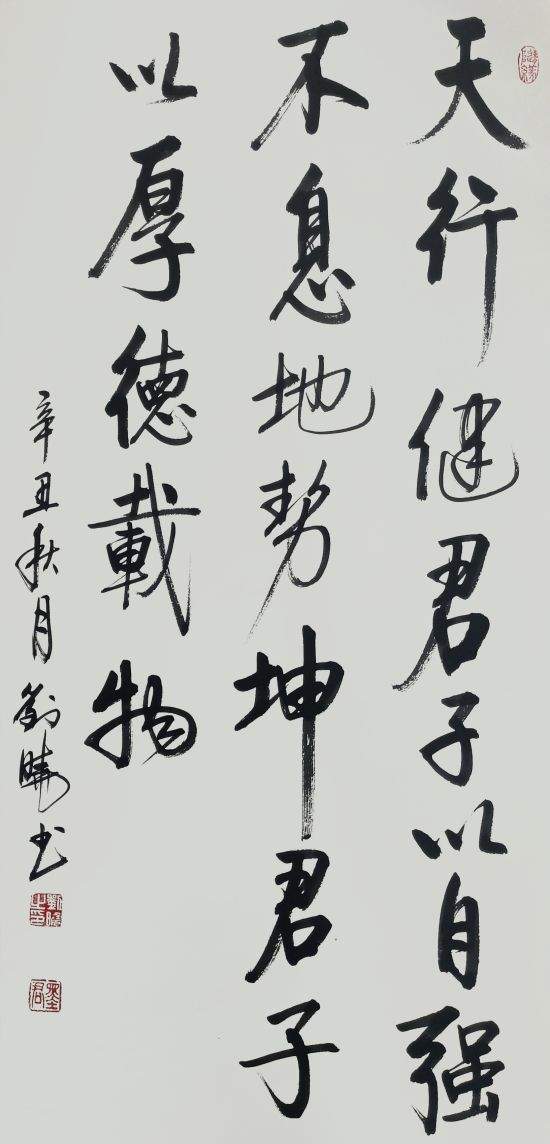 天行健君子以自强
不息地势坤君子
以厚德載物
辛丑秋月劉曉书